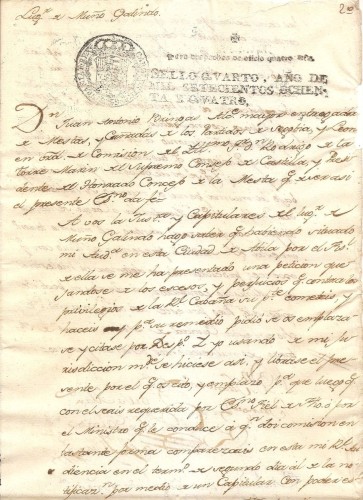 Lugr de Muño Galindo.
20
para despachos de oficio quatro mrs.
SELLO QVARTO, AÑO DE
MIL SETECIENTOS OCHEN-
TA Y QVATRO.
Dn Juan Antonio Alce maior entregador
de Mestas, y Cañadas de los Partidos de Segovia, y Leon
en vd de Comision del Illmo Sr Dn Rodrigo de la
Torre Marin del Supremo Consejo de Castilla, y Presi
dente del Honrrado Concejo de la Mesta qe de ser asi
el presente Esno da fe
A vos la Justa y Capitulares del lugr de
Muño Galindo hago saver qe haviendo situado
mi Auda en esta Ciudad de Avila por el
de ella se me ha presentado una peticion que
jandose de los excesos, y perjuicios qe contra los
privilegios de la Rl Cabaña su pte cometeis, y
haceis y pa su remedio pidio se os emplaza
se y citase por Despo Y yo usando de mi ju
risdiccion mde se hiciese asi, y librase el pre
sente por el qe os cito, y emplazo pa que luego qe
con el seais requerido por Esno Fiel de
por el Ministro qe le conduce a qn doy comision en
bastante forma comparezcais en esta mi Rl Au
diencia en el termo de segundo dia del de la no
tificaon por medio de un Capitular con poder es